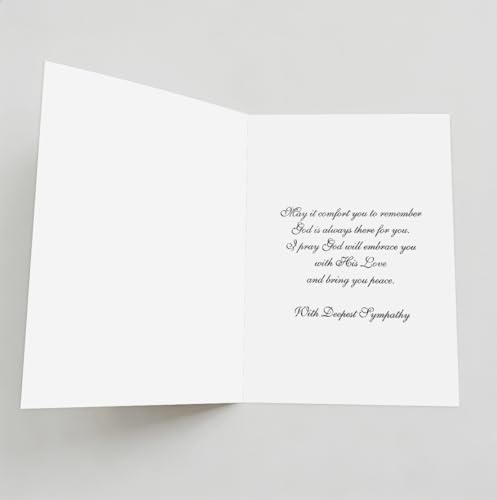 May it comfort you to remember
God is always there for you.
I pray God will embrace you
with His Love
and bring you peace.
With Deepest Sympathy